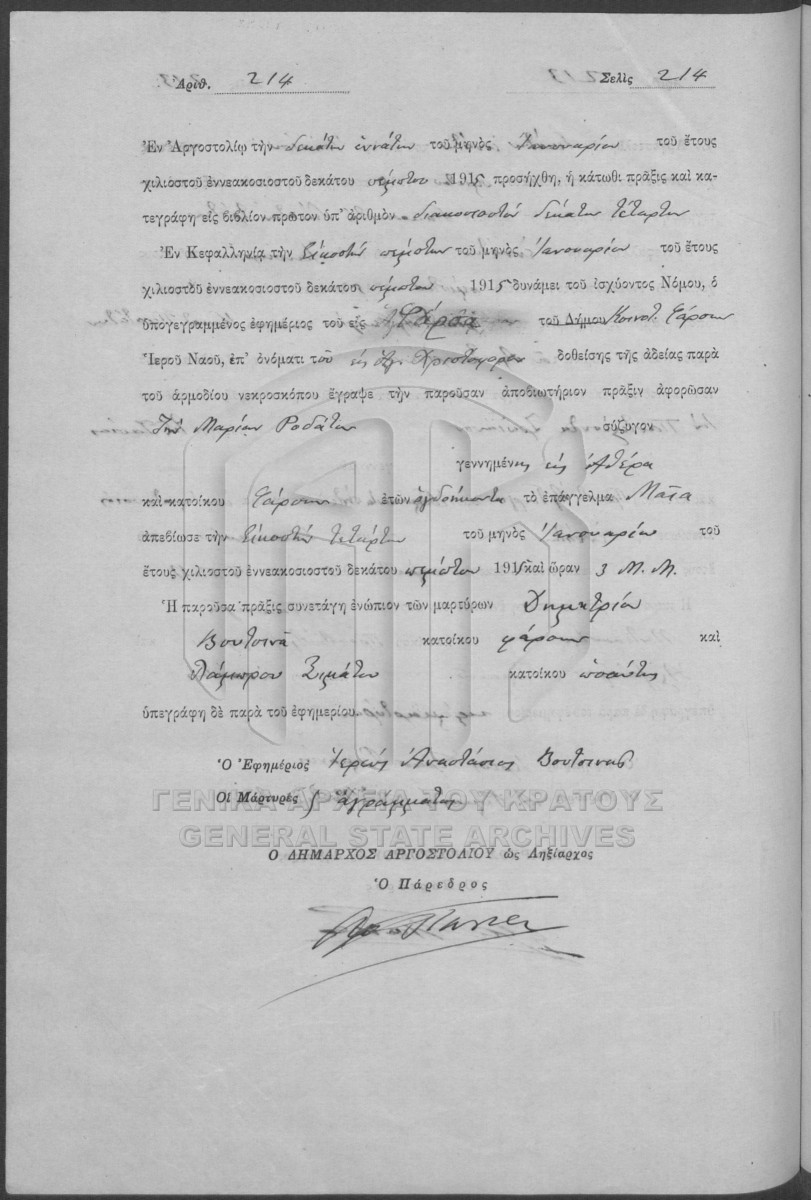 Ἀριθ. 214 Σελὶς 214
Ἐν Ἀργοστολίῳ τὴν δεκάτην ἐννάτην τοῦ μηνὸς Ἰανουαρίου τοῦ ἔτους
χιλιοστοῦ ἐννεακοσιοστοῦ δεκάτου πέμπτου 1915 προσήχθη, ἡ κάτωθι πρᾶξις καὶ κα-
τεγράφη εἰς βιβλίον πρῶτον ὑπ' ἀριθμὸν διακοσιοστὸν δέκατον τέταρτον
Ἐν Κεφαλληνίᾳ τὴν Εἰκοστὴν πέμπτην τοῦ μηνὸς Ἰανουαρίου τοῦ ἔτους
χιλιοστοῦ ἐννεακοσιοστοῦ δεκάτου πέμπτου 1915 δυνάμει τοῦ ἰσχύοντος Νόμου, ὁ
ὑπογεγραμμένος ἐφημέριος τοῦ εἰς Φάρσα τοῦ Δήμου Κοινοτ. Φάρσων
Ἱεροῦ Ναοῦ, ἐπ' ὀνόματι τοῦ εἰς Ἁγ. Χριστοφόρου δοθείσης τῆς ἀδείας παρὰ
τοῦ ἁρμοδίου νεκροσκόπου ἔγραψε τὴν παροῦσαν ἀποβιωτήριον πρᾶξιν ἀφορῶσαν
Τὴν Μαρίαν Ροδάτου σύζυγον
γεννημένης εἰς Ἀθέρα
καὶ κατοίκου Φάρσων ἐτῶν ὀγδοήκοντα τὸ ἐπάγγελμα
ἀπεβίωσε τὴν Εἰκοστὴν τετάρτην τοῦ μηνὸς Ἰανουαρίου τοῦ
ἔτους χιλιοστοῦ ἐννεακοσιοστοῦ δεκάτου πέμπτου 1915 καὶ ὥραν 3 Μ.Μ.
Ἡ παροῦσα πρᾶξις συνετάγη ἐνώπιον τῶν μαρτύρων Δημητρίου
Βουτσινᾶ κατοίκου φάρσων καὶ
Λάμπρου Σιμάτου κατοίκου ὡσαύτως
ὑπεγράφη δὲ παρὰ τοῦ ἐφημερίου
Ὁ Ἐφημέριος Ἱερεὺς Ἀναστάσιος Βουτσινᾶς
Οἱ Μάρτυρες ἀγράμματοι
ΓΕΝΙΚΑ ΑΡΧΕΙΑ ΤΟΥ ΚΡΑΤΟΥΣ
GENERAL STATE ARCHIVES
Ο ΔΗΜΑΡΧΟΣ ΑΡΓΟΣΤΟΛΙΟΥ ὡς Ληξίαρχος
Ὁ Πάρεδρος